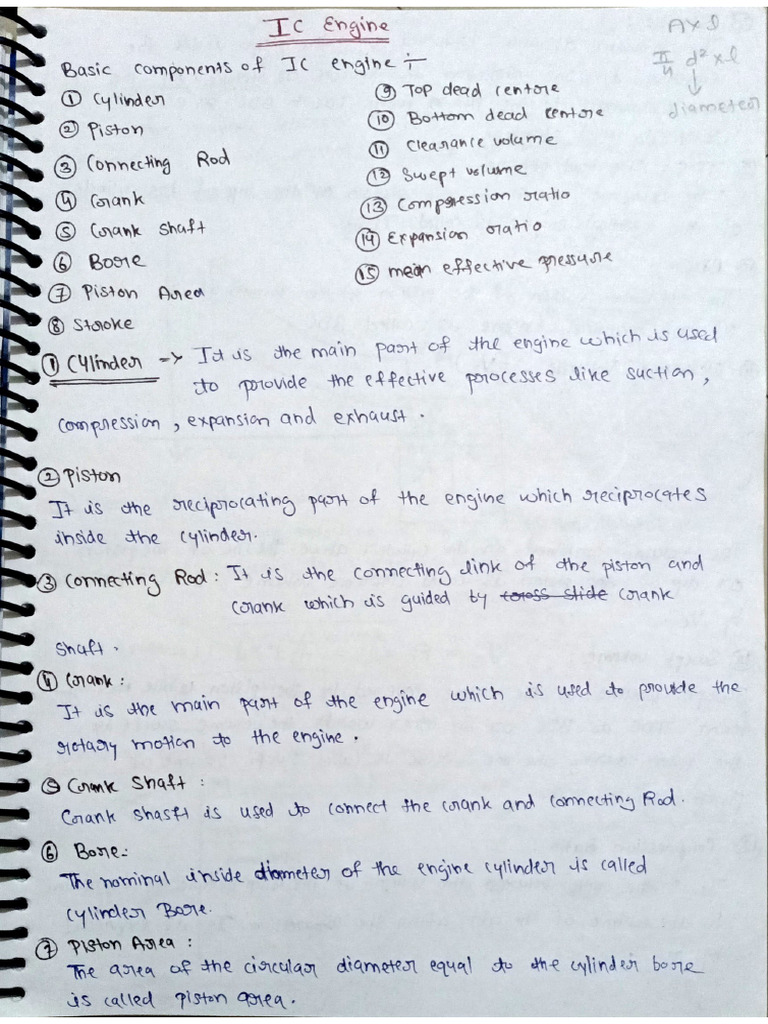 IC Engine
A×l
π/4 d² × l
↓
diameter
Basic components of IC engine :-
① Cylinder
② Piston
③ Connecting Rod
④ Crank
⑤ Crank shaft
⑥ Bore
⑦ Piston Area
⑧ Stroke
⑨ Top dead centore
⑩ Bottom dead centore
⑪ Clearance volume
⑫ Swept volume
⑬ Compression ratio
⑭ Expansion ratio
⑮ mean effective pressure
① Cylinder -> It is the main part of the engine which is used
to provide the effective processes like suction,
compression, expansion and exhaust.
② Piston
It is the reciprocating part of the engine which reciprocates
inside the cylinder.
③ Connecting Rod : It is the connecting link of the piston and
crank which is guided by cross slide crank
shaft.
④ Crank :
It is the main part of the engine which is used to provide the
rotary motion to the engine.
⑤ Crank Shaft :
Crank shasft is used to connect the crank and connecting Rod.
⑥ Bore:-
The nominal inside diameter of the engine cylinder is called
cylinder Bore.
⑦ Piston Area :
The area of the circular diameter equal to the cylinder bore
is called piston area.